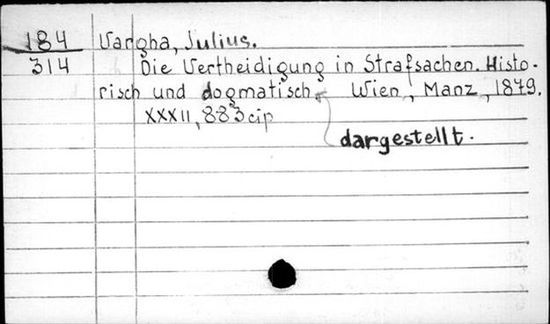 184 Vargha, Julius.
314 Die Vertheidigung in Strafsachen. Histo-
risch und dogmatisch. Wien, Manz, 1879.
XXXII, 883 cip
dargestellt.